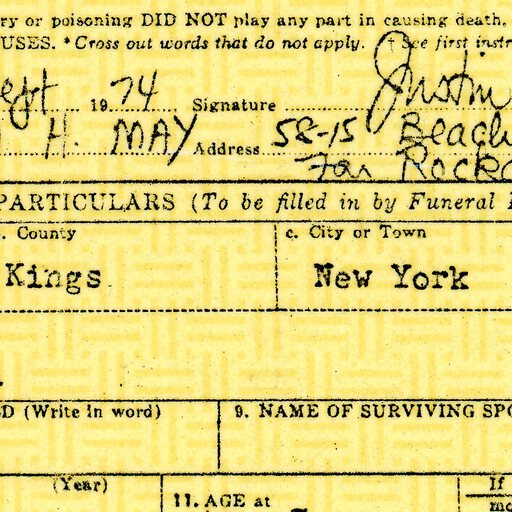 ry or poisoning DID NOT play any part in causing death.
USES. * Cross out words that do not apply. † See first instr
ept 1974 Signature Justin
H. MAY Address 58-15 Beach
Far Rocka
PARTICULARS (To be filled in by Funeral
. County c. City or Town
Kings New York
D (Write in word) 9. NAME OF SURVIVING SPO
(Year) 11. AGE at If
mo